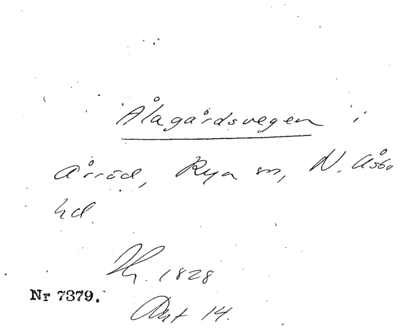 Ålagårdsvegen i
Årröd, Rya sn, N. Åsbo
hd.
1828
Nr 7379.
14.